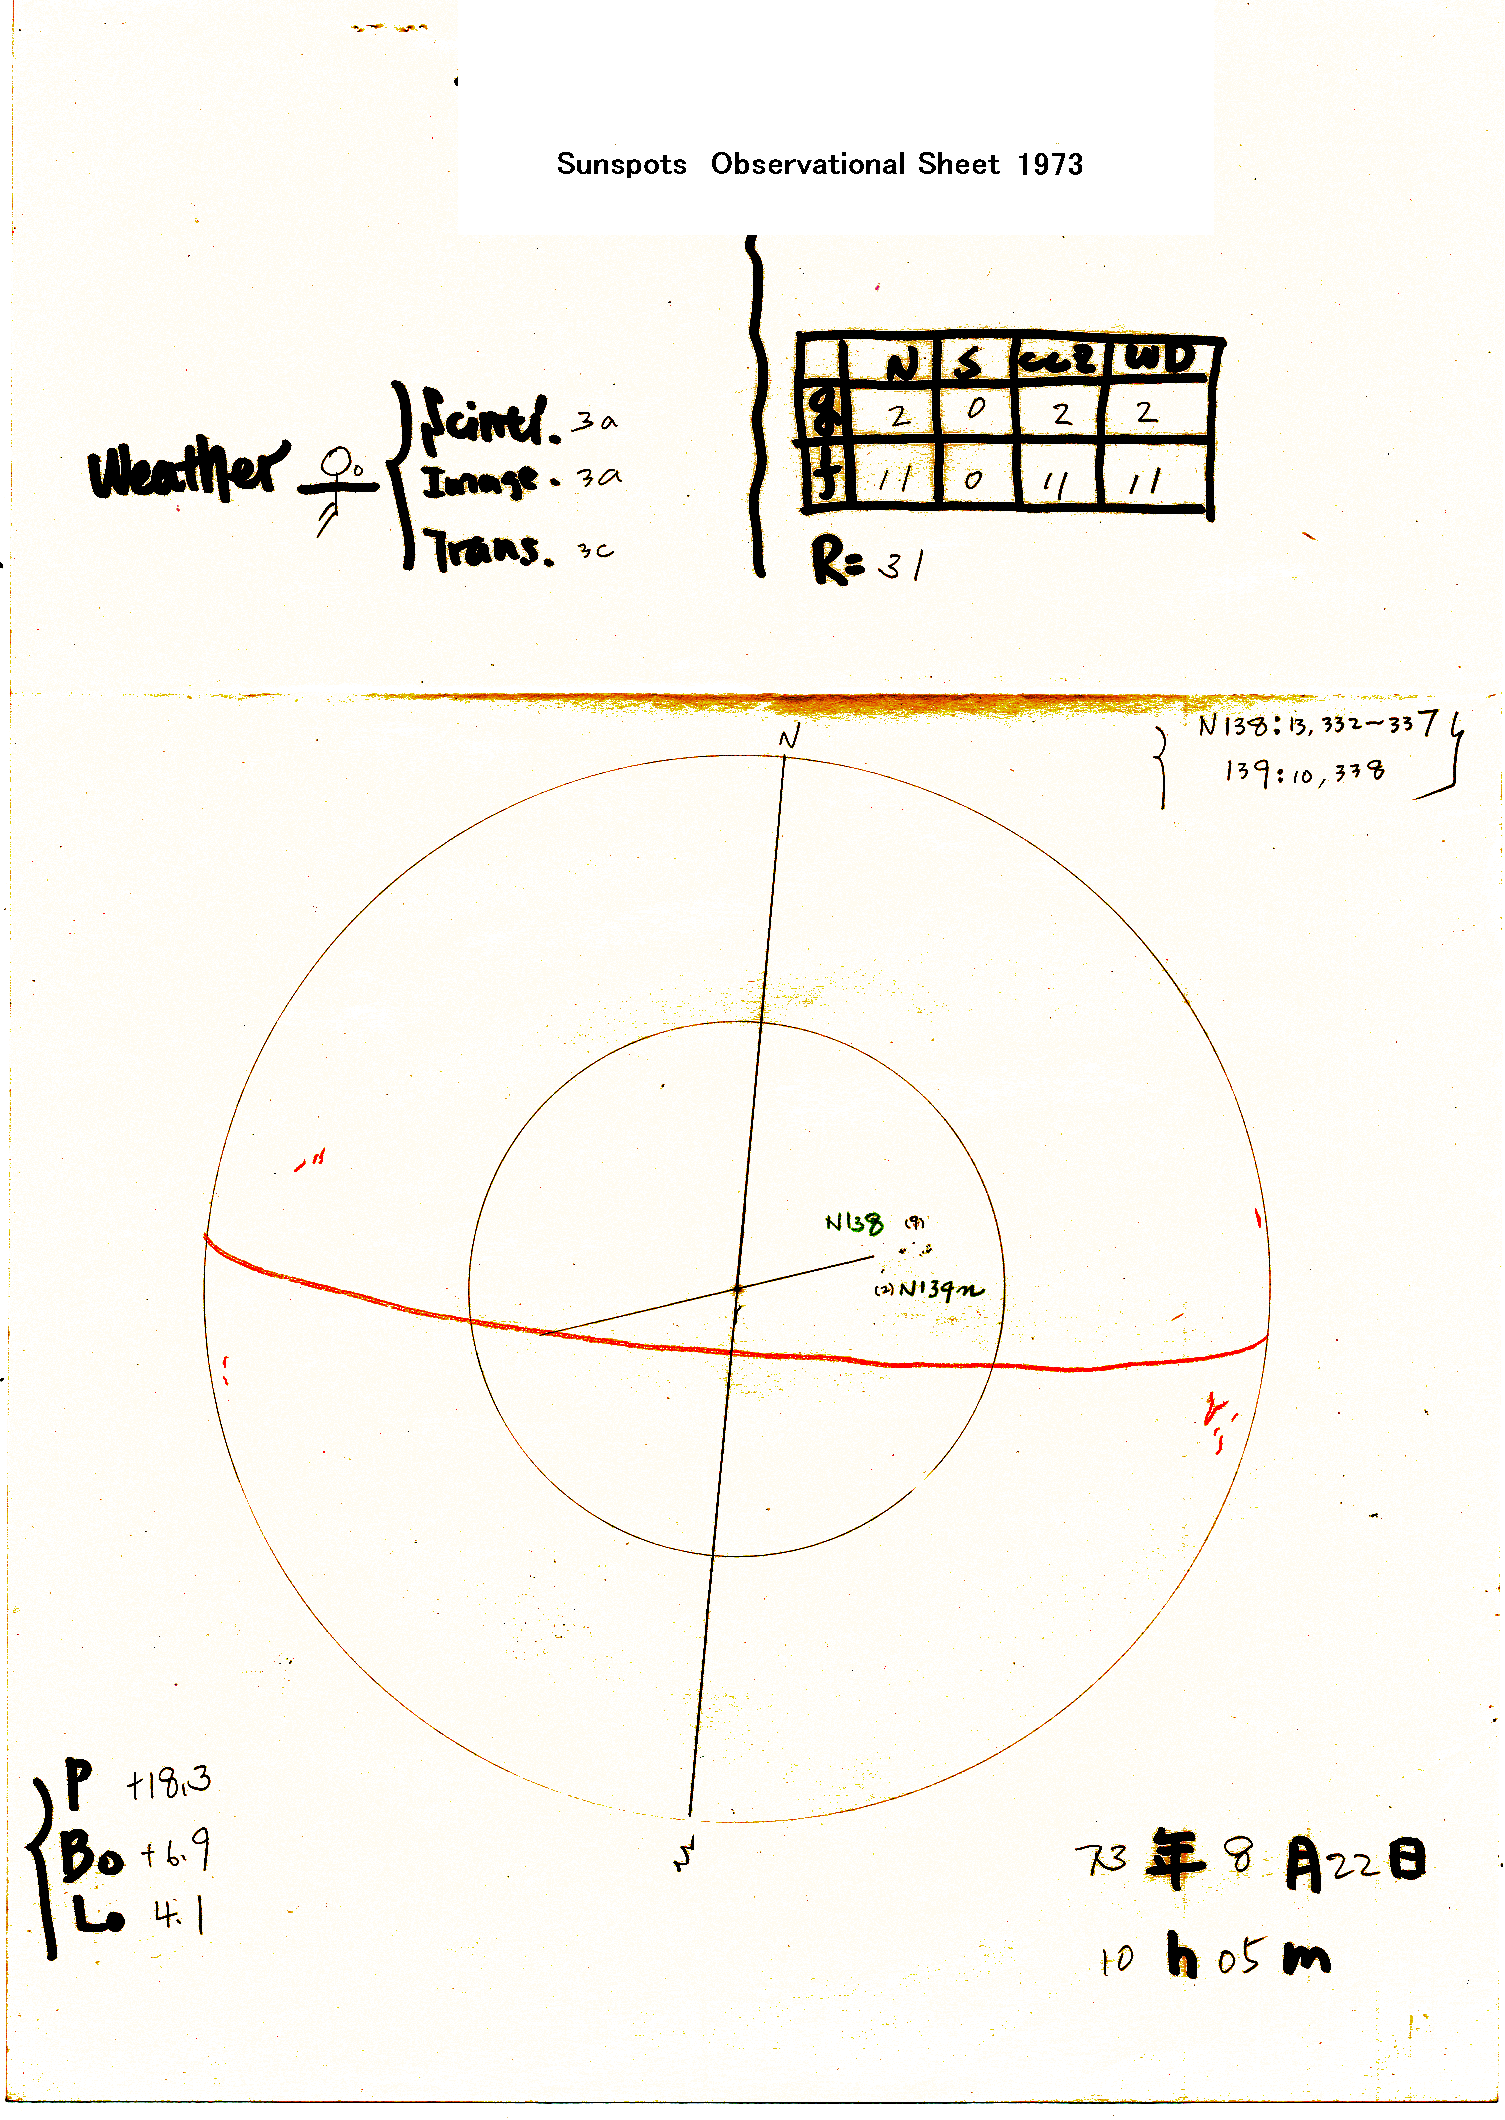 Sunspots Observational Sheet 1973
N S cc2 WD
g 2 0 2 2
f 11 0 11 11
R= 31
Weather
Scintl. 3a
Image. 3a
Trans. 3c
N138: 13, 332~337
139: 10, 338
N
N138 (9)
(2) N139n
S
P +18.3
Bo +6.9
Lo 4.1
73年8月22日
10h05m